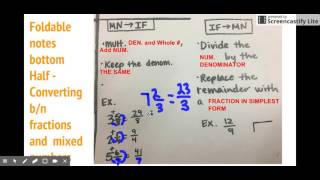 Foldable
notes
bottom
Half -
Converting
b/n
fractions
and mixed
numbers
MN → IF
• mult. DEN. and Whole #,
Add NUM.
• Keep the denom.
THE SAME
Ex.
7 2/3 = 23/3
29/8
9/4
41/7
IF → MN
• Divide the
NUM. by the
DENOMINATOR
• Replace the
remainder with
a FRACTION IN SIMPLEST
FORM
Ex. 12/9
Screencastify Lite